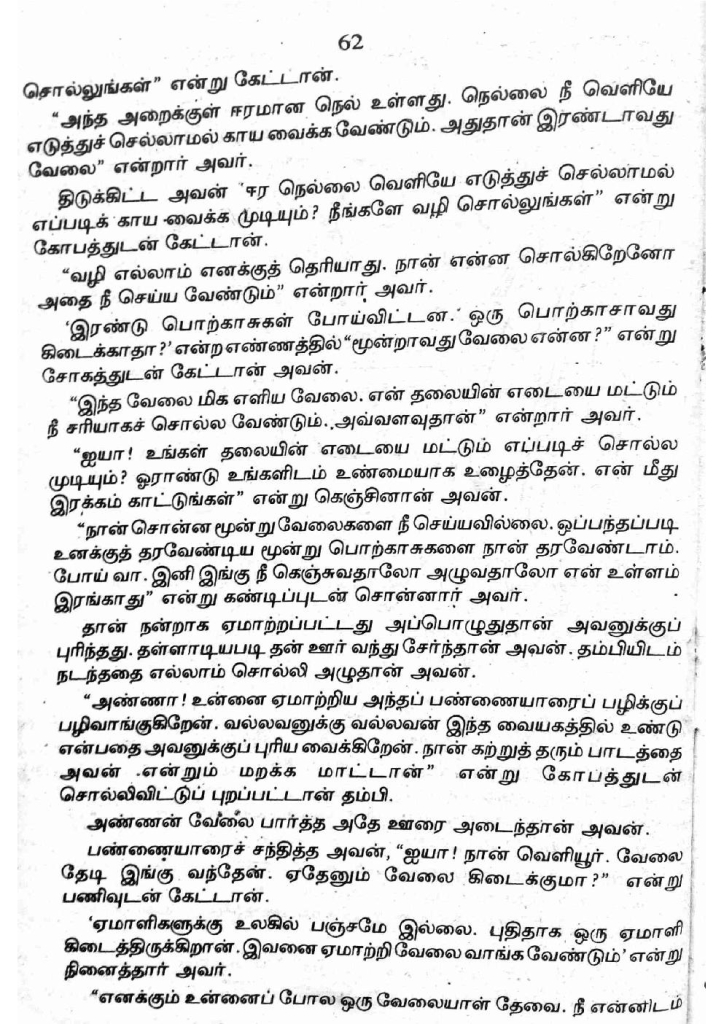 62
சொல்லுங்கள்” என்று கேட்டான்.
“அந்த அறைக்குள் ஈரமான நெல் உள்ளது. நெல்லை நீ வெளியே
எடுத்துச் செல்லாமல் காய வைக்க வேண்டும். அதுதான் இரண்டாவது
வேலை” என்றார் அவர்.
திடுக்கிட்ட அவன் ‘ஈர நெல்லை வெளியே எடுத்துச் செல்லாமல்
எப்படிக் காய வைக்க முடியும்? நீங்களே வழி சொல்லுங்கள்” என்று
கோபத்துடன் கேட்டான்.
“வழி எல்லாம் எனக்குத் தெரியாது. நான் என்ன சொல்கிறேனோ
அதை நீ செய்ய வேண்டும்” என்றார் அவர்.
‘இரண்டு பொற்காசுகள் போய்விட்டன.‘ ஒரு பொற்காசாவது
கிடைக்காதா?’ என்ற எண்ணத்தில் “மூன்றாவது வேலை என்ன?” என்று
சோகத்துடன் கேட்டான் அவன்.
“இந்த வேலை மிக எளிய வேலை. என் தலையின் எடையை மட்டும்
நீ சரியாகச் சொல்ல வேண்டும்..அவ்வளவுதான்” என்றார் அவர்.
“ஐயா! உங்கள் தலையின் எடையை மட்டும் எப்படிச் சொல்ல
முடியும்? ஓராண்டு உங்களிடம் உண்மையாக உழைத்தேன். என் மீது
இரக்கம் காட்டுங்கள்” என்று கெஞ்சினான் அவன்.
“நான் சொன்ன மூன்று வேலைகளை நீ செய்யவில்லை. ஒப்பந்தப்படி
உனக்குத் தரவேண்டிய மூன்று பொற்காசுகளை நான் தரவேண்டாம்.
போய் வா. இனி இங்கு நீ கெஞ்சுவதாலோ அழுவதாலோ என் உள்ளம்
இரங்காது” என்று கண்டிப்புடன் சொன்னார் அவர்.
தான் நன்றாக ஏமாற்றப்பட்டது அப்பொழுதுதான் அவனுக்குப்
புரிந்தது. தள்ளாடியபடி தன் ஊர் வந்து சேர்ந்தான் அவன். தம்பியிடம்
நடந்ததை எல்லாம் சொல்லி அழுதான் அவன்.
“அண்ணா! உன்னை ஏமாற்றிய அந்தப் பண்ணையாரைப் பழிக்குப்
பழிவாங்குகிறேன். வல்லவனுக்கு வல்லவன் இந்த வையகத்தில் உண்டு
என்பதை அவனுக்குப் புரிய வைக்கிறேன். நான் கற்றுத் தரும் பாடத்தை
அவன் என்றும் மறக்க மாட்டான்” என்று கோபத்துடன்
சொல்லிவிட்டுப் புறப்பட்டான் தம்பி.
அண்ணன் வேலை பார்த்த அதே ஊரை அடைந்தான் அவன்.
பண்ணையாரைச் சந்தித்த அவன், “ஐயா! நான் வெளியூர். வேலை
தேடி இங்கு வந்தேன். ஏதேனும் வேலை கிடைக்குமா?” என்று
பணிவுடன் கேட்டான்.
‘ஏமாளிகளுக்கு உலகில் பஞ்சமே இல்லை. புதிதாக ஒரு ஏமாளி
கிடைத்திருக்கிறான். இவனை ஏமாற்றி வேலை வாங்க வேண்டும்’ என்று
நினைத்தார் அவர்.
“எனக்கும் உன்னைப் போல ஒரு வேலையாள் தேவை. நீ என்னிடம்